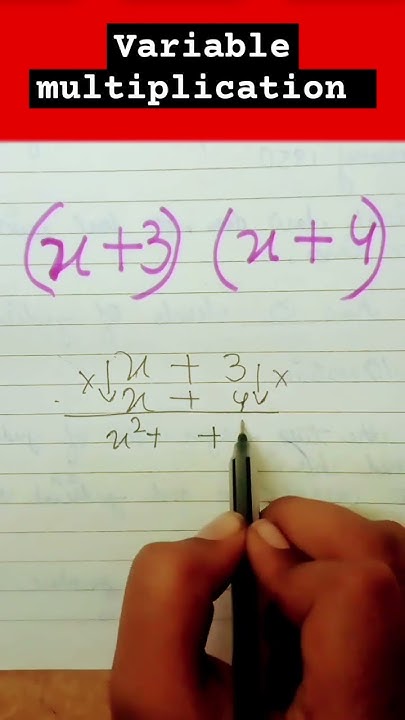 Variable
multiplication
(x+3) (x+4)
x ↓ x + 3 ↓ x
x + 4
x² + +